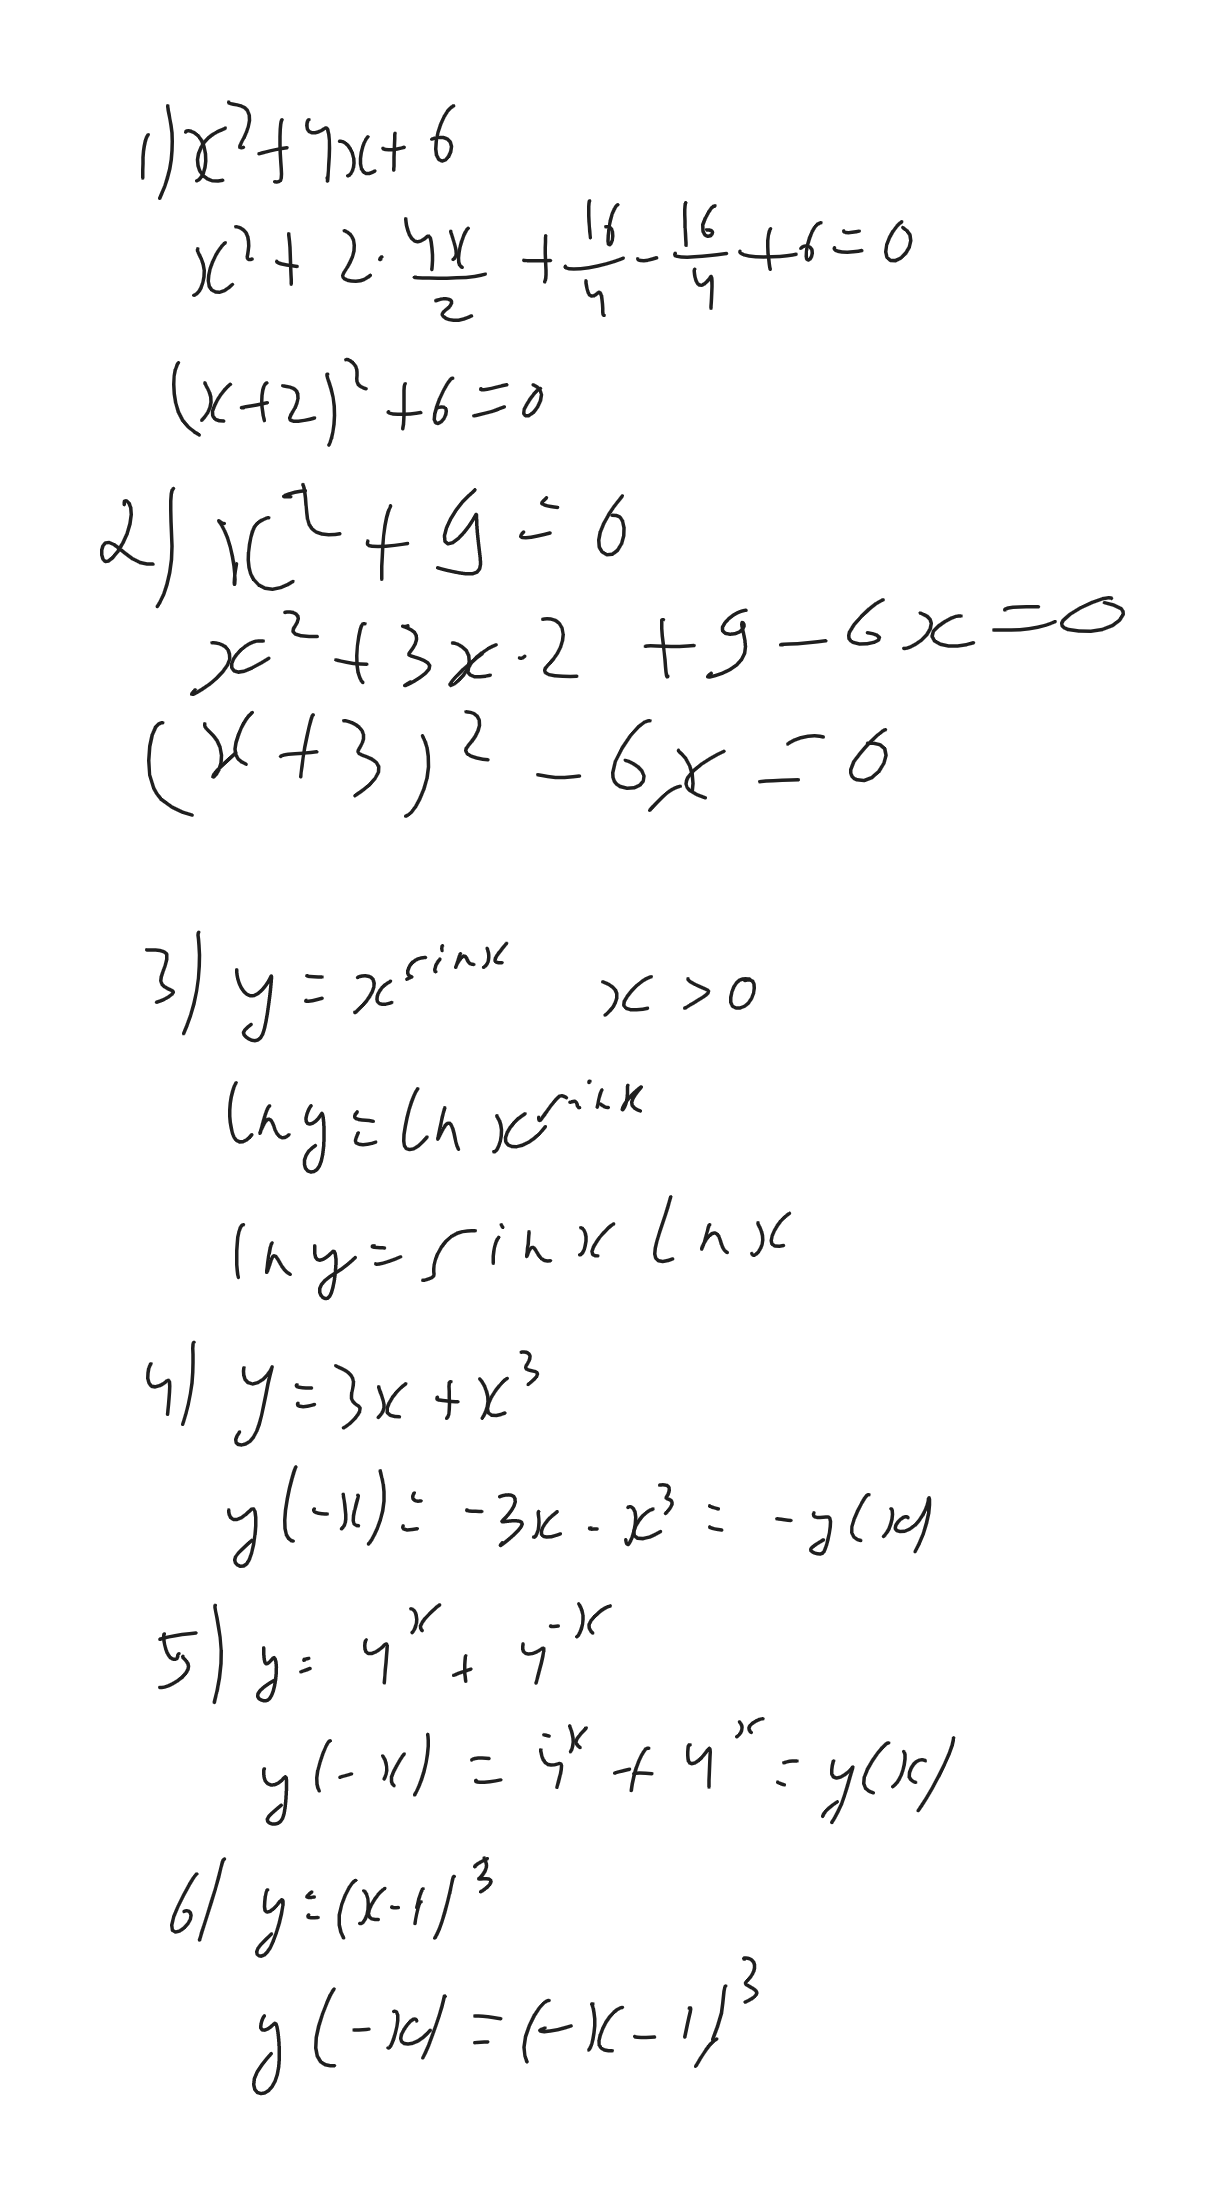 1) x² + 4x + 6
x² + 2 · 4x/2 + 16/4 - 16/4 + 6 = 0
(x+2)² + 6 = 0
2) x² + 9 = 0
x² + 3x · 2 + 9 - 6x = 0
(x+3)² - 6x = 0
3) y = x^(sin x)   x > 0
ln y = ln x^(sin x)
ln y = sin x ln x
4) y = 3x + x³
y(-x) = -3x - x³ = -y(x)
5) y = 4^x + 4^(-x)
y(-x) = 4^(-x) + 4^x = y(x)
6) y = (x-1)³
y(-x) = (-x-1)³